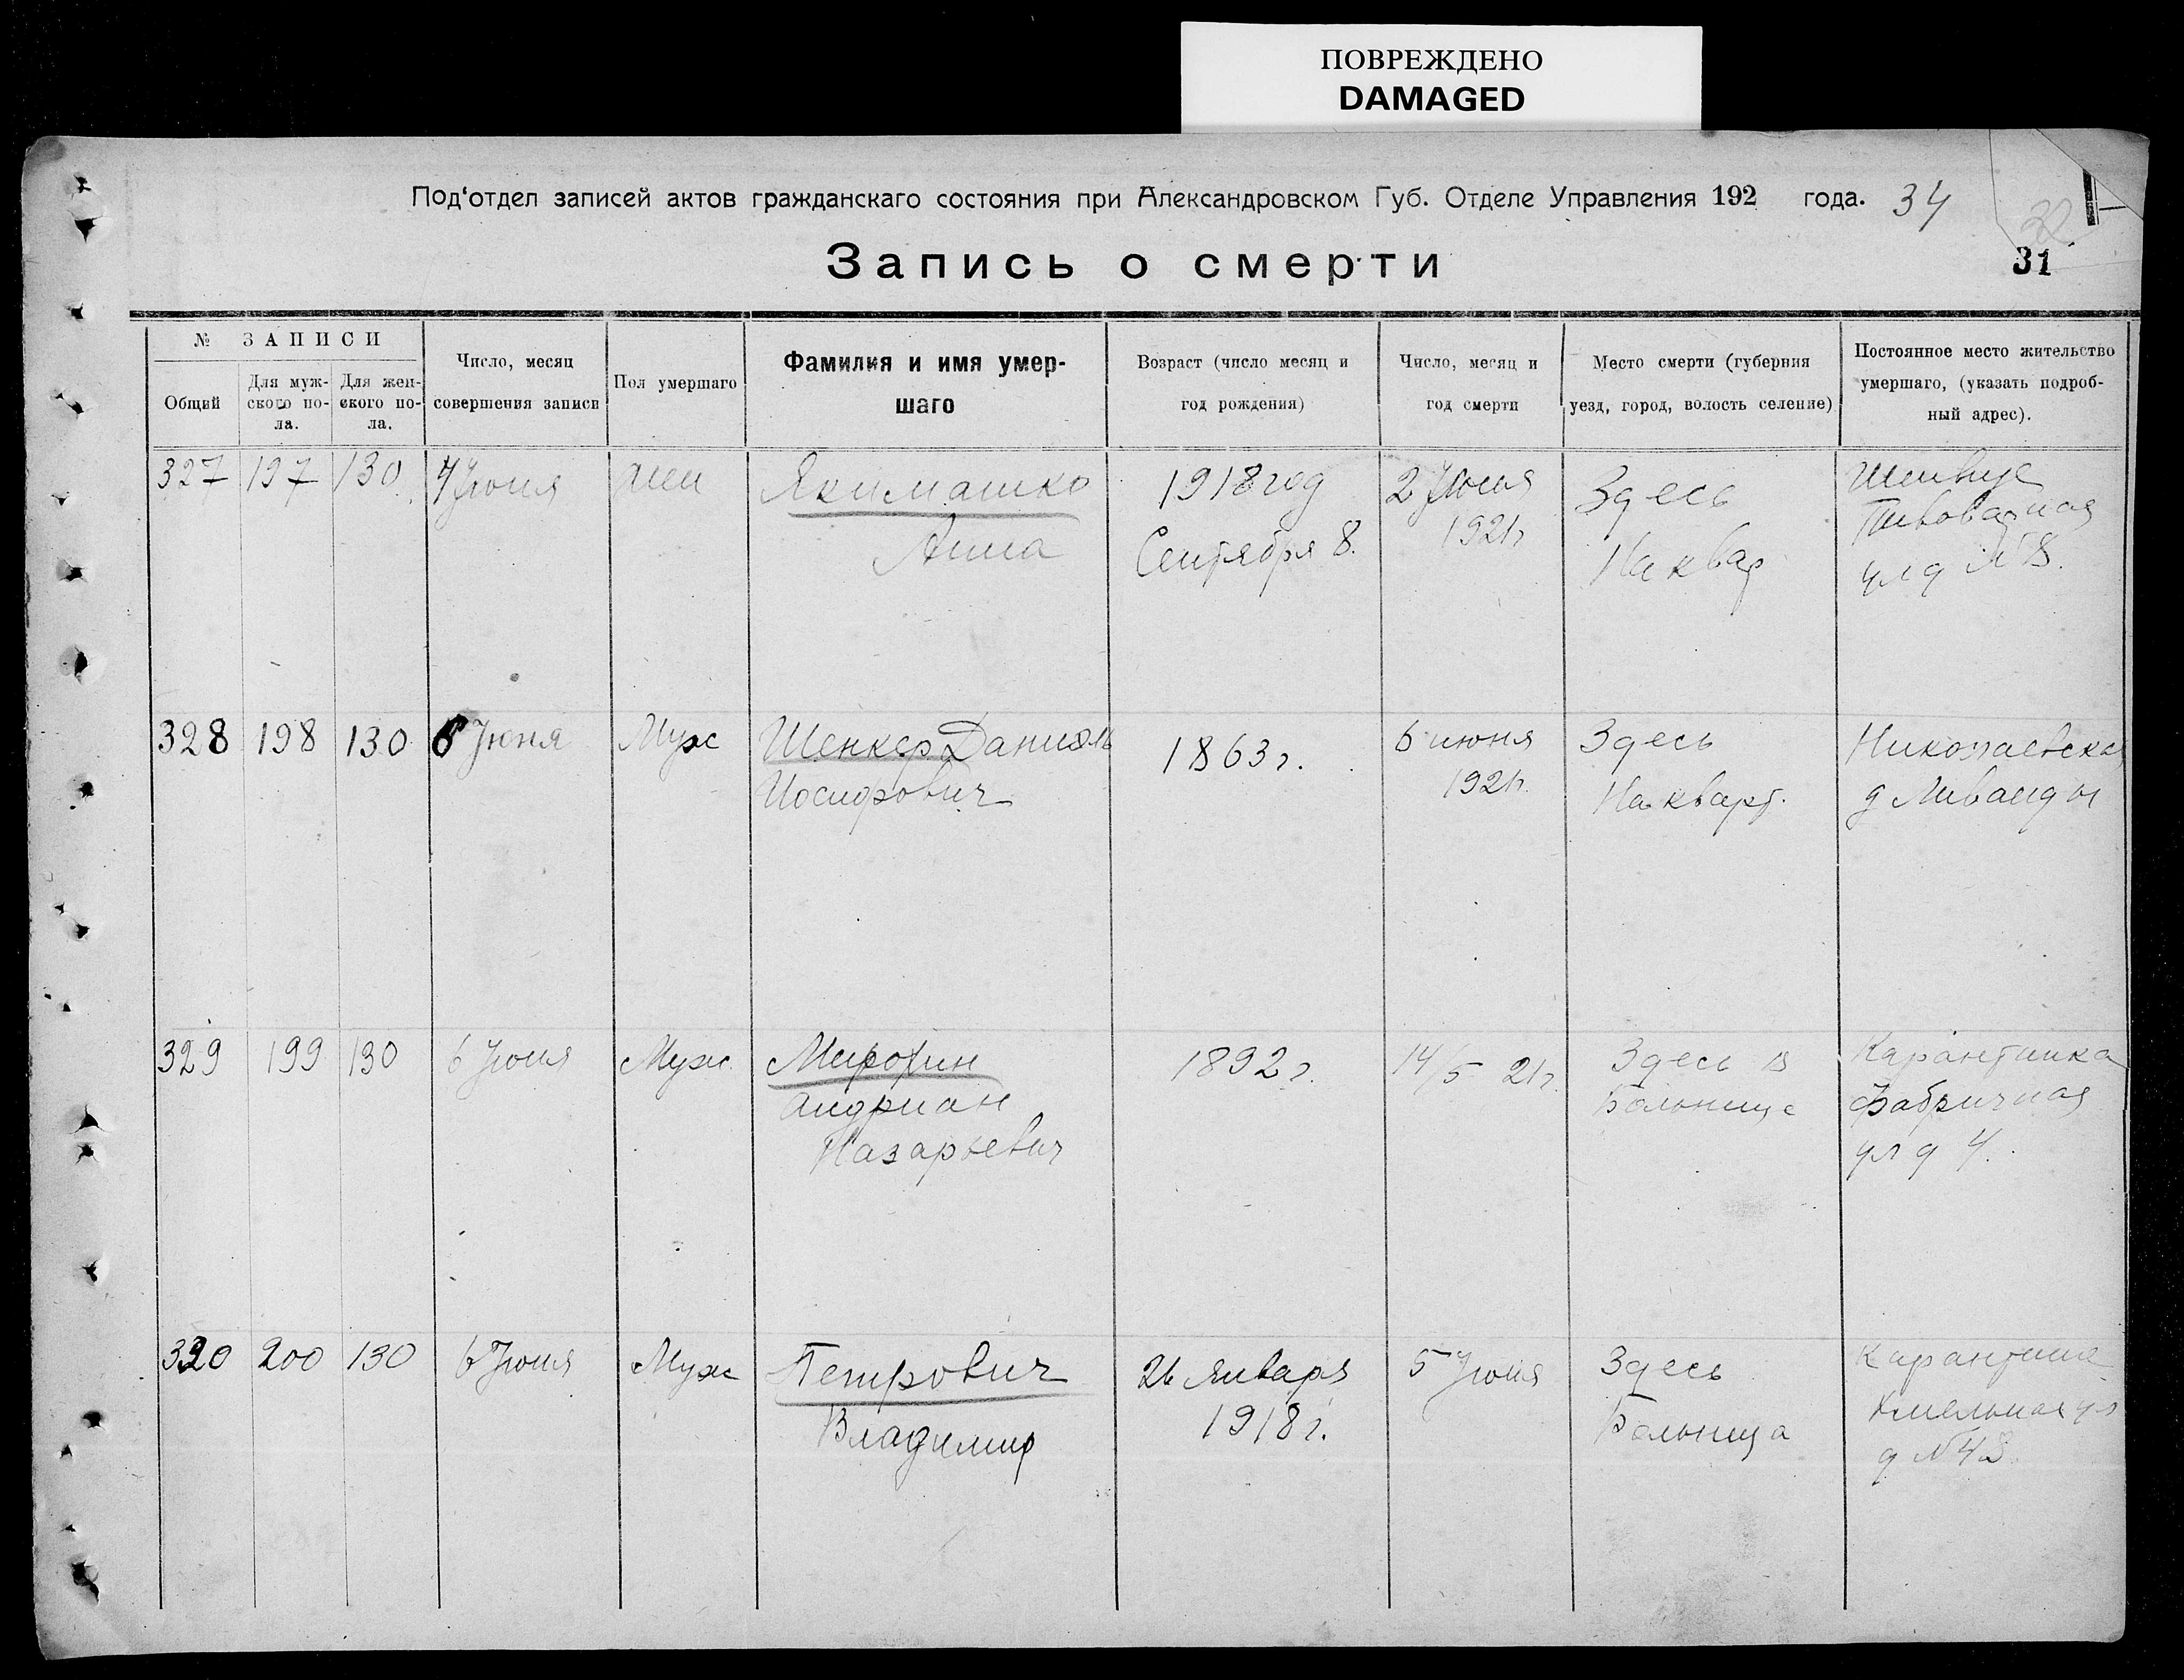 ПОВРЕЖДЕНО
DAMAGED
Под‘отдел записей актов гражданскаго состояния при Александровском Губ. Отделе Управления 192 года. 34
32
Запись о смерти
31
№ ЗАПИСИ
Общий
Для муж-
ского по-
ла.
Для жен-
ского по-
ла.
Число, месяц
совершения записи
Пол умершаго
Фамилия и имя умер-
шаго
Возраст (число месяц и
год рождения)
Число, месяц и
год смерти
Место смерти (губерния
уезд, город, волость селение)
Постоянное место жительство
умершаго, (указать подроб-
ный адрес).
327 197 130 4 Июня жен
Якимашко
Анна
1918 год
Сентября 8.
2 Июня
1921г
Здесь
На квар
Пивоварная
ул д № 8.
328 198 130 6 Июня Муж
Шенкер Даниэль
Иосифович
1863 г.
6 июня
1921г.
Здесь
На кварт.
Николаевская
д Ливанды
329 199 130 6 Июня Муж.
Мирохин
Андриан
Назарьевич
1892 г.
14/5 21г.
Здесь в
Больнице
Карантинка
Фабричная
ул д 4.
330 200 130 6 Июня Муж
Петрович
Владимир
26 Января
1918 г.
5 Июня
Здесь
Больница
Карантина
ул
д № 43